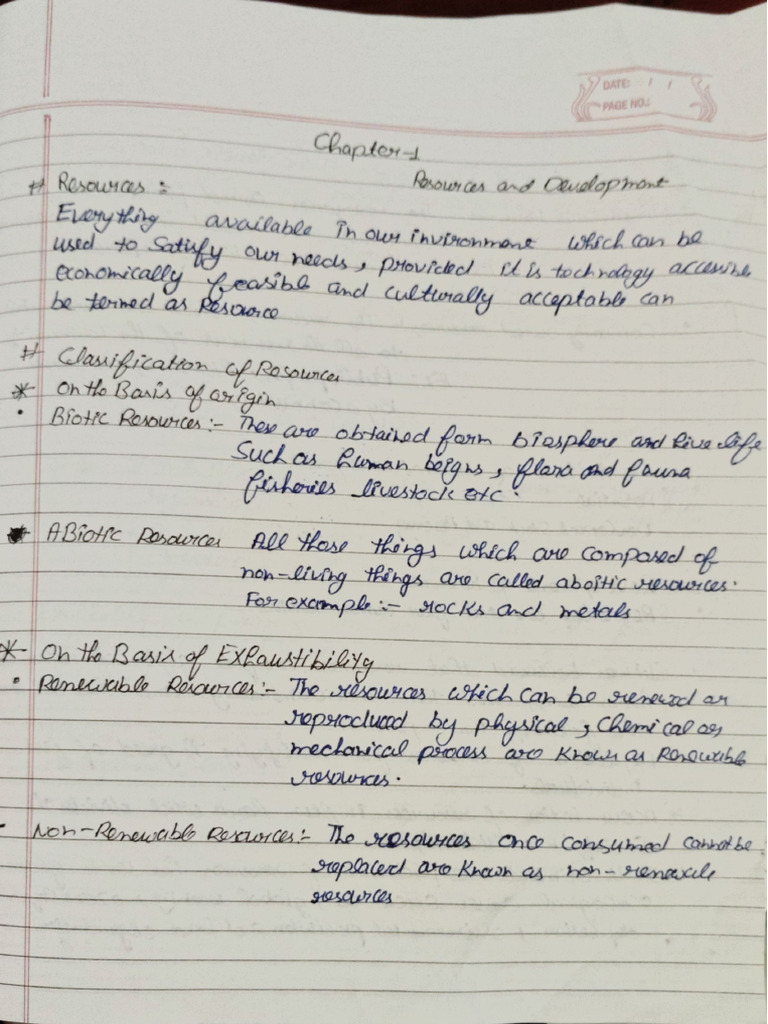 DATE: / /
PAGE NO.:
Chapter-1
Resources and Development
# Resources :
Everything available in our invironment which can be
used to satisfy our needs, provided it is technology accessible
economically feasible and culturally acceptable can
be termed as Resource
# Classification of Resources
* On the Basis of origin
• Biotic Resources :- These are obtained form biosphere and live life
Such as human beigns, flaxa and fauna
fisheries livestock etc.
ABiotic Resources All those things which are composed of
non-living things are called aboitic resources.
For example :- rocks and metals
* On the Basis of Exhaustibility
• Renewable Resources :- The resources which can be renewed or
reproduced by physical, Chemical or
mechanical process are known as Renewable
resources.
• Non-Renewable Resources :- The resources once consumed cannot be
replaced are known as non-renewcle
resources